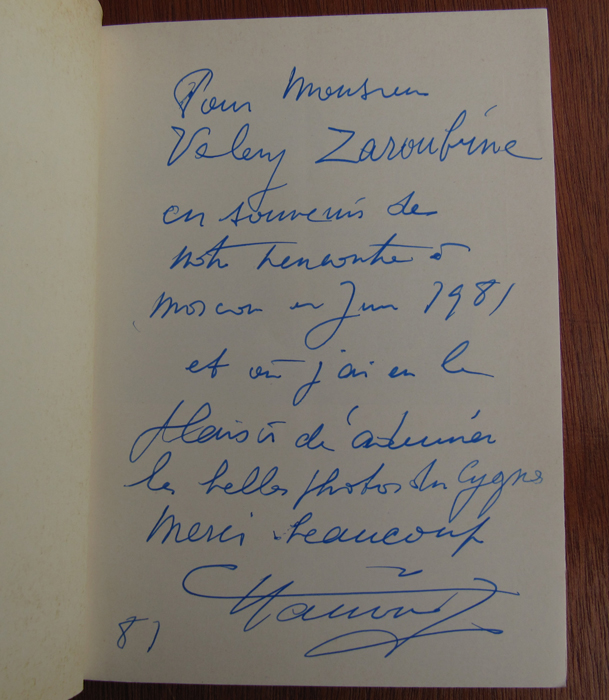 Pour Monsieur
Valery Zaroubine
en souvenir de
notre rencontre à
Moscou en Juin 1981
et où j'ai eu le
plaisir d'admirer
les belles photos du Cygne
Merci beaucoup
81